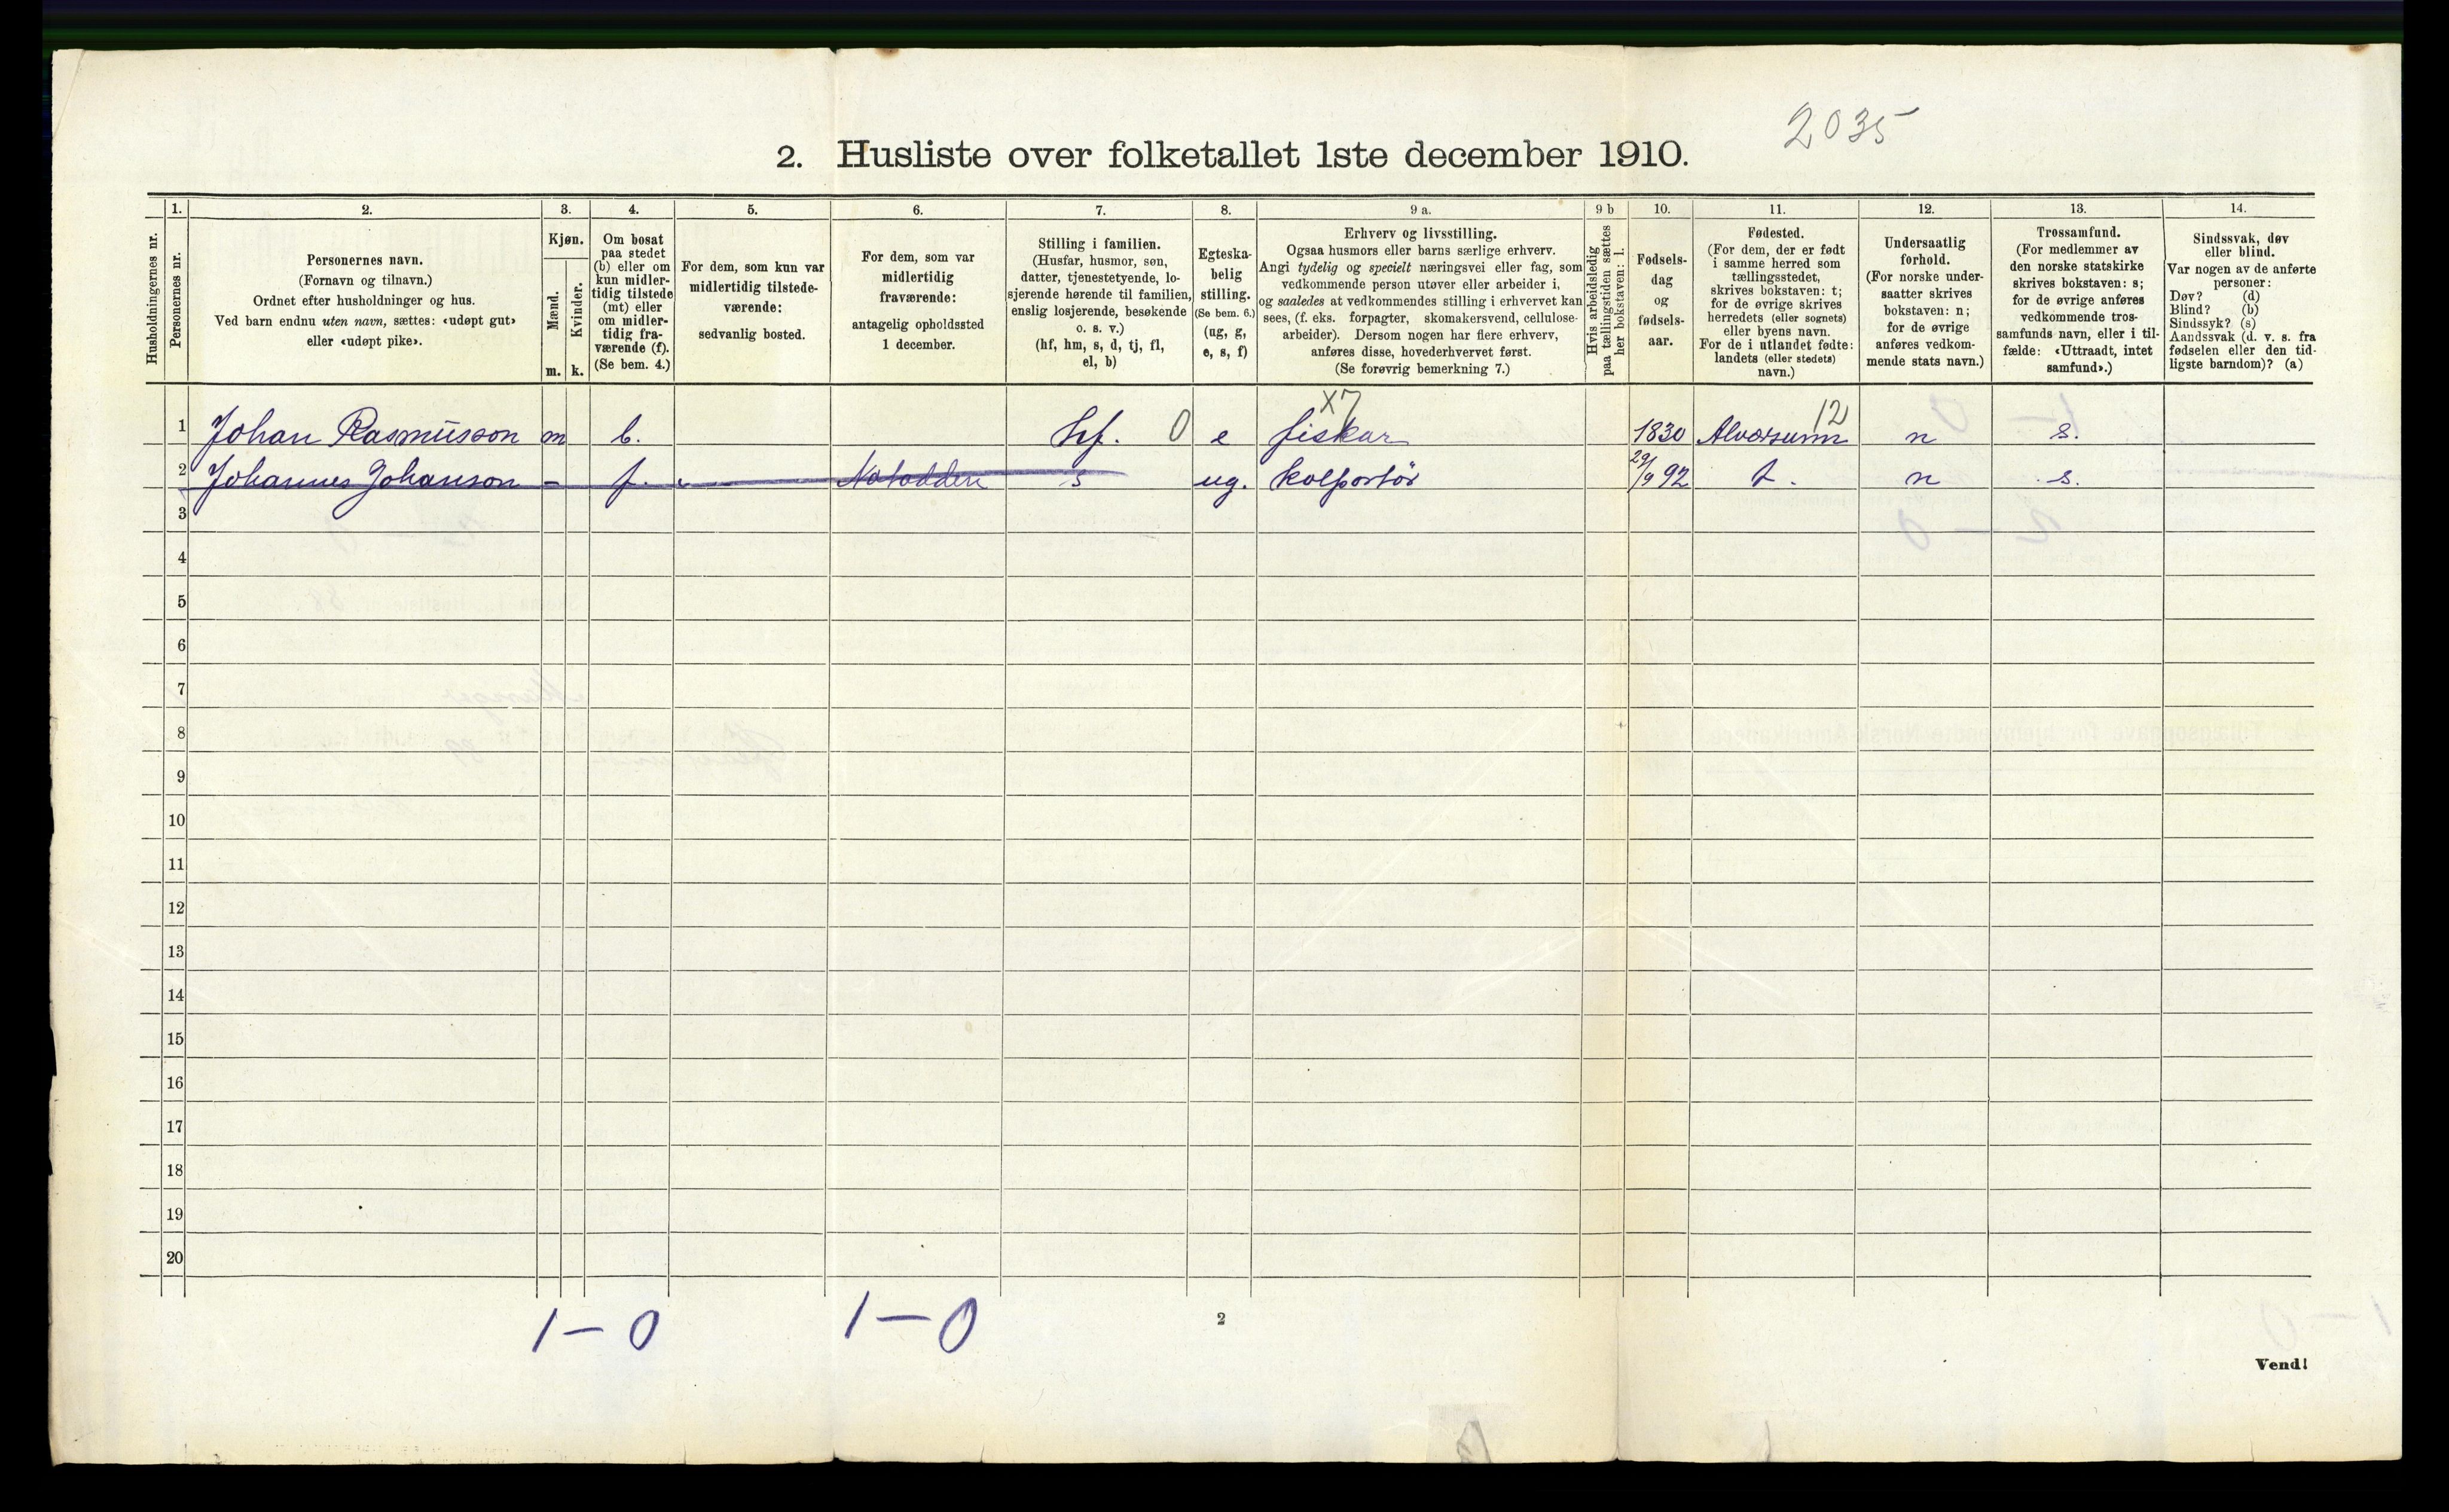 2035
2. Husliste over folketallet 1ste december 1910.
1. 2. 3. 4. 5. 6. 7. 8. 9 a. 9 b 10. 11. 12. 13. 14.
Husholdningernes nr.
Personernes nr.
Personernes navn.
(Fornavn og tilnavn.)
Ordnet efter husholdninger og hus.
Ved barn endnu uten navn, sættes: «udøpt gut»
eller «udøpt pike».
Kjøn.
Mænd.
Kvinder.
m. k.
Om bosat
paa stedet
(b) eller om
kun midler-
tidig tilstede
(mt) eller
om midler-
tidig fra-
værende (f).
(Se bem. 4.)
For dem, som kun var
midlertidig tilstede-
værende:
sedvanlig bosted.
For dem, som var
midlertidig
fraværende:
antagelig opholdssted
1 december.
Stilling i familien.
(Husfar, husmor, søn,
datter, tjenestetyende, lo-
sjerende hørende til familien,
enslig losjerende, besøkende
o. s. v.)
(hf, hm, s, d, tj, fl,
el, b)
Egteska-
belig
stilling.
(Se bem. 6.)
(ug, g,
e, s, f)
Erhverv og livsstilling.
Ogsaa husmors eller barns særlige erhverv.
Angi tydelig og specielt næringsvei eller fag, som
vedkommende person utøver eller arbeider i,
og saaledes at vedkommendes stilling i erhvervet kan
sees, (f. eks. forpagter, skomakersvend, cellulose-
arbeider). Dersom nogen har flere erhverv,
anføres disse, hovederhvervet først.
(Se forøvrig bemerkning 7.)
Hvis arbeidsledig
paa tællingstiden sættes
her bokstaven: l.
Fødsels-
dag
og
fødsels-
aar.
Fødested.
(For dem, der er født
i samme herred som
tællingsstedet,
skrives bokstaven: t;
for de øvrige skrives
herredets (eller sognets)
eller byens navn.
For de i utlandet fødte:
landets (eller stedets)
navn.)
Undersaatlig
forhold.
(For norske under-
saatter skrives
bokstaven: n;
for de øvrige
anføres vedkom-
mende stats navn.)
Trossamfund.
(For medlemmer av
den norske statskirke
skrives bokstaven: s;
for de øvrige anføres
vedkommende tros-
samfunds navn, eller i til-
fælde: «Uttraadt, intet
samfund».)
Sindssvak, døv
eller blind.
Var nogen av de anførte
personer:
Døv? (d)
Blind? (b)
Sindssyk? (s)
Aandssvak (d. v. s. fra
fødselen eller den tid-
ligste barndom)? (a)
x7 12
1 Johan Rasmusson m b. hf. 0 e fiskar 1830 Alversunn n s.
2 Johannes Johanson - f. Notodden s ug. kolportør 29/9 92 t. n s.
3
4
5
6
7
8
9
10
11
12
13
14
15
16
17
18
19
20
1 — 0 1 — 0
2
Vend!